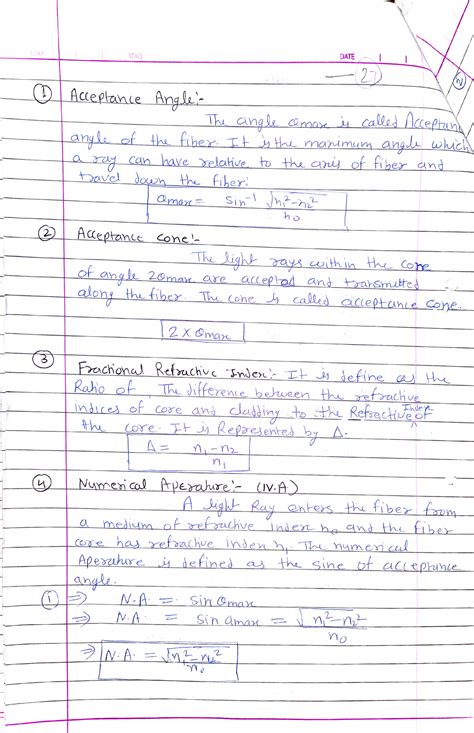 DATE
27
① Acceptance Angle:-
The angle θmax is called Acceptance
angle of the fiber. It is the maximum angle which
a ray can have relative to the axis of fiber and
travel down the fiber.
θmax = sin⁻¹ √n₁²-n₂² / n₀
② Acceptance cone:-
The light rays within the cone
of angle 2θmax are accepted and transmitted
along the fiber. The cone is called acceptance cone.
2 × θmax
③ Fractional Refractive Index:- It is define as the
Ratio of The difference between the refractive
indices of core and cladding to the Refractive Index of
the core. It is Represented by Δ.
Δ = n₁-n₂ / n₁
④ Numerical Aperature:- (N.A)
A light Ray enters the fiber from
a medium of refractive index n₀ and the fiber
core has refractive index n₁. The numerical
Aperature is defined as the sine of acceptance
angle.
① ⇒ N.A. = sin θmax
⇒ N.A. = sin θmax = √n₁²-n₂² / n₀
⇒ N.A. = √n₁²-n₂² / n₀